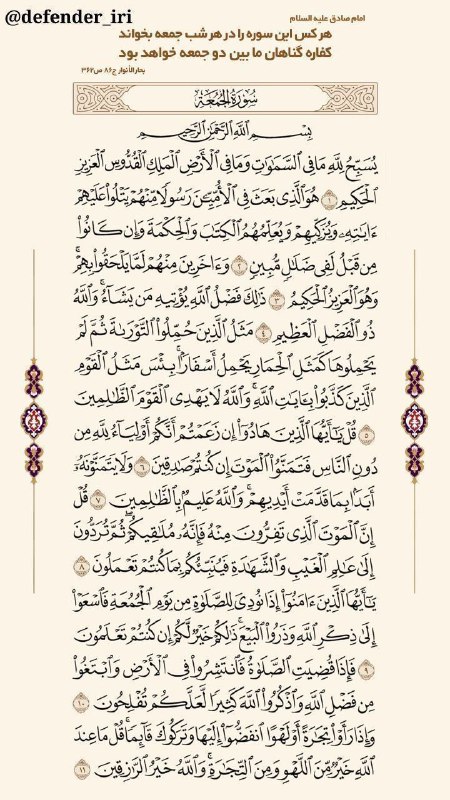 @defender_iri
امام صادق علیه السلام
هر کس این سوره را در هر شب جمعه بخواند
کفاره گناهان ما بین دو جمعه خواهد بود
بحارالأنوار ج۸۶ ص۳۶۲
سُورَةُ الجُمُعَةِ
بِسْمِ اللَّهِ الرَّحْمَٰنِ الرَّحِيمِ
يُسَبِّحُ لِلَّهِ مَا فِي السَّمَٰوَٰتِ وَمَا فِي الْأَرْضِ الْمَلِكِ الْقُدُّوسِ الْعَزِيزِ
الْحَكِيمِ ١ هُوَ الَّذِي بَعَثَ فِي الْأُمِّيِّينَ رَسُولًا مِّنْهُمْ يَتْلُوا عَلَيْهِمْ
ءَايَٰتِهِ وَيُزَكِّيهِمْ وَيُعَلِّمُهُمُ الْكِتَٰبَ وَالْحِكْمَةَ وَإِن كَانُوا
مِن قَبْلُ لَفِي ضَلَٰلٍ مُّبِينٍ ٢ وَءَاخَرِينَ مِنْهُمْ لَمَّا يَلْحَقُوا بِهِمْ ۚ
وَهُوَ الْعَزِيزُ الْحَكِيمُ ٣ ذَٰلِكَ فَضْلُ اللَّهِ يُؤْتِيهِ مَن يَشَاءُ ۚ وَاللَّهُ
ذُو الْفَضْلِ الْعَظِيمِ ٤ مَثَلُ الَّذِينَ حُمِّلُوا التَّوْرَىٰةَ ثُمَّ لَمْ
يَحْمِلُوهَا كَمَثَلِ الْحِمَارِ يَحْمِلُ أَسْفَارًا ۚ بِئْسَ مَثَلُ الْقَوْمِ
الَّذِينَ كَذَّبُوا بِـَٔايَٰتِ اللَّهِ ۚ وَاللَّهُ لَا يَهْدِي الْقَوْمَ الظَّٰلِمِينَ
٥ قُلْ يَٰأَيُّهَا الَّذِينَ هَادُوا إِن زَعَمْتُمْ أَنَّكُمْ أَوْلِيَاءُ لِلَّهِ مِن
دُونِ النَّاسِ فَتَمَنَّوُا الْمَوْتَ إِن كُنتُمْ صَٰدِقِينَ ٦ وَلَا يَتَمَنَّوْنَهُ
أَبَدًا بِمَا قَدَّمَتْ أَيْدِيهِمْ ۚ وَاللَّهُ عَلِيمٌ بِالظَّٰلِمِينَ ٧ قُلْ
إِنَّ الْمَوْتَ الَّذِي تَفِرُّونَ مِنْهُ فَإِنَّهُ مُلَٰقِيكُمْ ۖ ثُمَّ تُرَدُّونَ
إِلَىٰ عَٰلِمِ الْغَيْبِ وَالشَّهَٰدَةِ فَيُنَبِّئُكُم بِمَا كُنتُمْ تَعْمَلُونَ ٨
يَٰأَيُّهَا الَّذِينَ ءَامَنُوا إِذَا نُودِيَ لِلصَّلَوٰةِ مِن يَوْمِ الْجُمُعَةِ فَاسْعَوْا
إِلَىٰ ذِكْرِ اللَّهِ وَذَرُوا الْبَيْعَ ۚ ذَٰلِكُمْ خَيْرٌ لَّكُمْ إِن كُنتُمْ تَعْلَمُونَ
٩ فَإِذَا قُضِيَتِ الصَّلَوٰةُ فَانتَشِرُوا فِي الْأَرْضِ وَابْتَغُوا
مِن فَضْلِ اللَّهِ وَاذْكُرُوا اللَّهَ كَثِيرًا لَّعَلَّكُمْ تُفْلِحُونَ ١٠
وَإِذَا رَأَوْا تِجَٰرَةً أَوْ لَهْوًا انفَضُّوا إِلَيْهَا وَتَرَكُوكَ قَائِمًا ۚ قُلْ مَا عِندَ
اللَّهِ خَيْرٌ مِّنَ اللَّهْوِ وَمِنَ التِّجَٰرَةِ ۚ وَاللَّهُ خَيْرُ الرَّٰزِقِينَ ١١